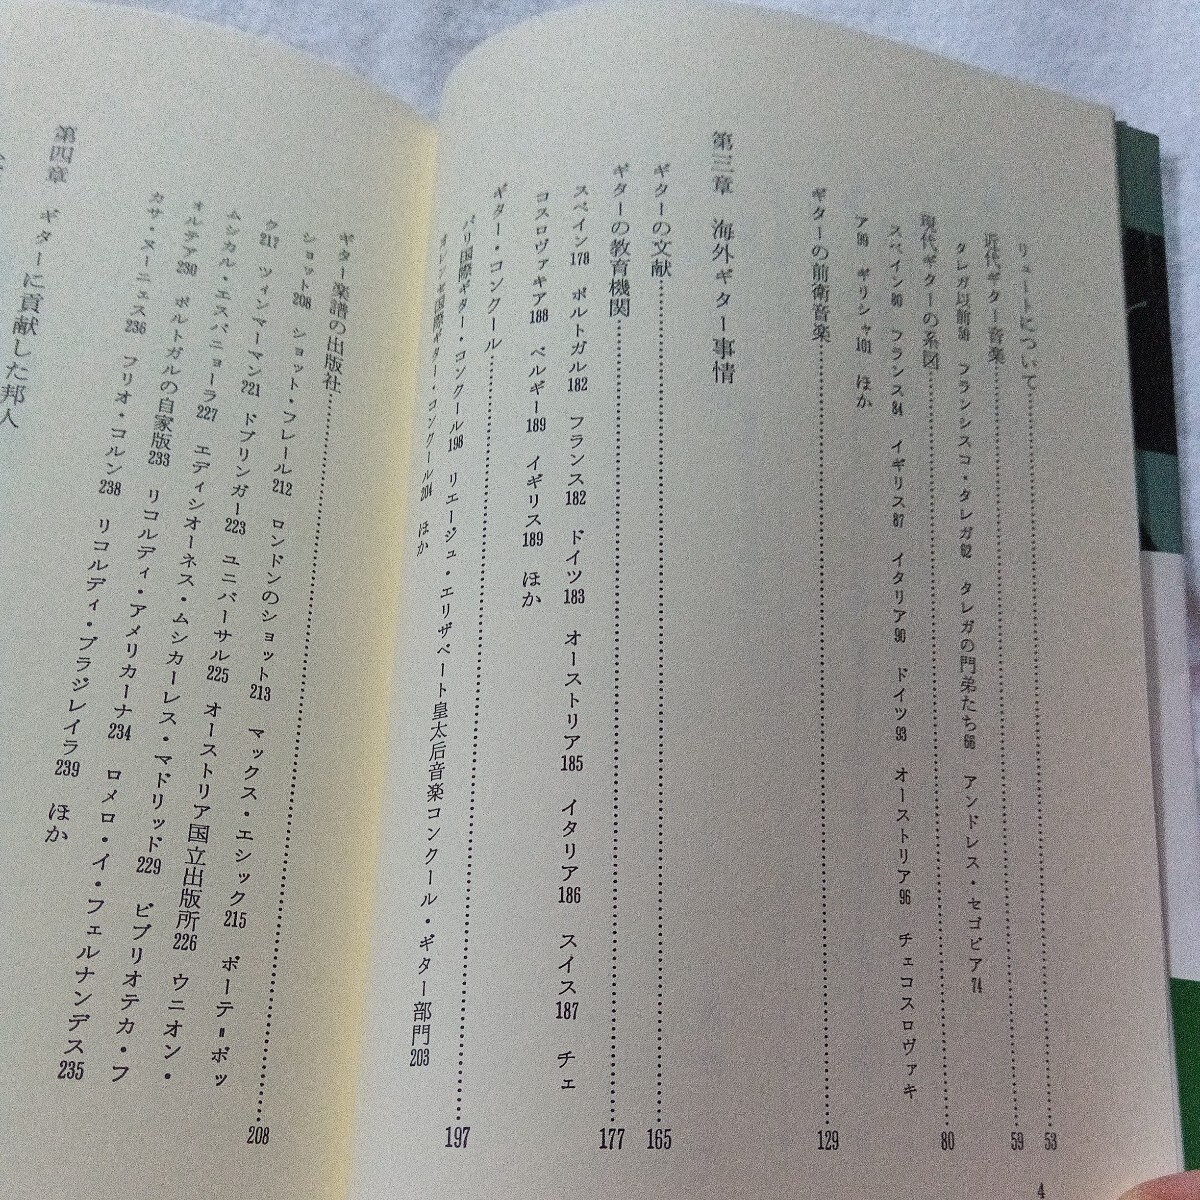 リュートについて……53
近代ギター音楽……59
タレガ以前59 フランシスコ・タレガ62 タレガの門弟たち66 アンドレス・セゴビア74
現代ギターの系図……80
スペイン80 フランス84 イギリス87 イタリア90 ドイツ93 オーストリア96 チェコスロヴァキ
ア99 ギリシャ101 ほか
ギターの前衛音楽……129
第三章 海外ギター事情
ギターの文献……165
ギターの教育機関……177
スペイン178 ポルトガル182 フランス182 ドイツ183 オーストリア185 イタリア186 スイス187 チェ
コスロヴァキア188 ベルギー189 イギリス189 ほか
ギター・コンクール……197
パリ国際ギター・コンクール198 リエージュ・エリザベート皇太后音楽コンクール・ギター部門203
オレンセ国際ギター・コンクール204 ほか
4
ギター楽譜の出版社……208
ショット208 ショット・フレール212 ロンドンのショット213 マックス・エシック215 ボーテ＝ボッ
ク217 ツィンマーマン221 ドブリンガー223 ユニバーサル225 オーストリア国立出版所226 ウニオン・
ムシカル・エスパニョーラ227 エディシオーネス・ムシカーレス・マドリッド229 ビブリオテカ・フ
ォルテア230 ポルトガルの自家版233 リコルディ・アメリカーナ234 ロメロ・イ・フェルナンデス235
カサ・ヌーニェス236 フリオ・コルン238 リコルディ・ブラジレイラ239 ほか
第四章 ギターに貢献した邦人